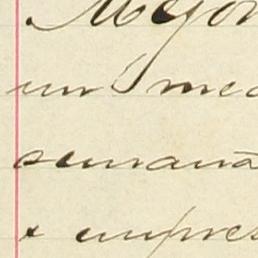 Mejor
un med
semana
e impres